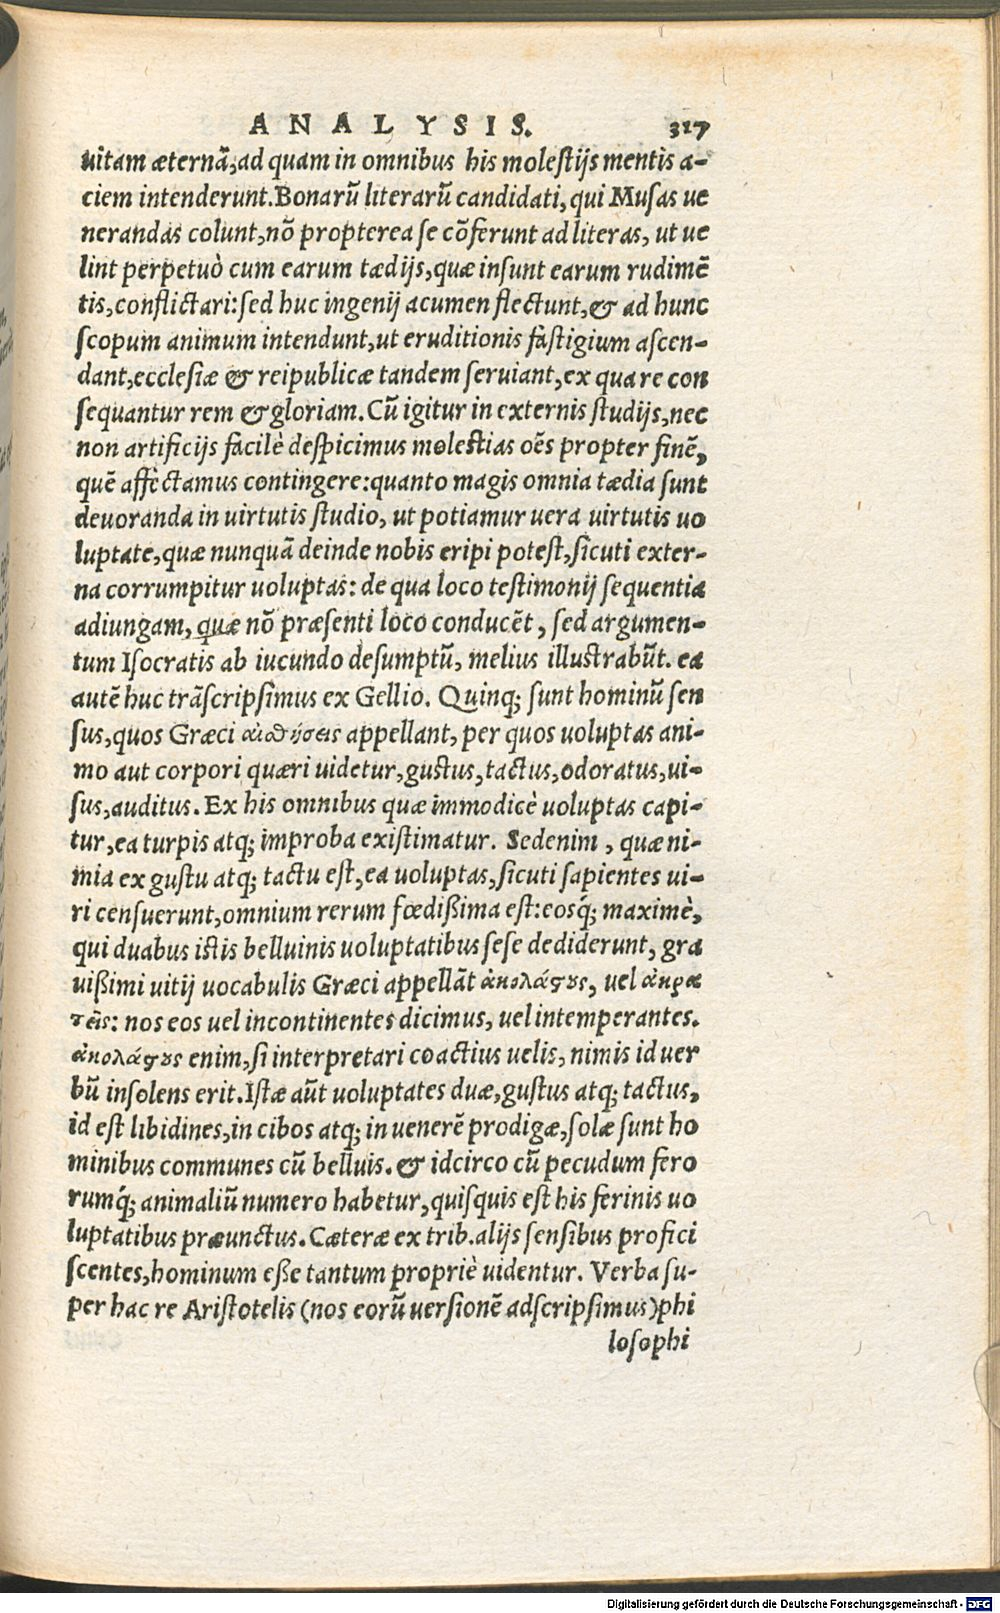 ANALYSIS. 317
uitam æternã, ad quam in omnibus his molestijs mentis a-
ciem intenderunt. Bonarũ literarũ candidati, qui Musas ue
nerandas colunt, nõ propterea se cõferunt ad literas, ut ue
lint perpetuò cum earum tædijs, quæ insunt earum rudimẽ
tis, conflictari: sed huc ingenij acumen flectunt, & ad hunc
scopum animum intendunt, ut eruditionis fastigium ascen-
dant, ecclesiæ & reipublicæ tandem seruiant, ex qua re con
sequantur rem & gloriam. Cũ igitur in externis studijs, nec
non artificijs facilè despicimus molestias oẽs propter finẽ,
quẽ affectamus contingere: quanto magis omnia tædia sunt
deuoranda in uirtutis studio, ut potiamur uera uirtutis uo
luptate, quæ nunquã deinde nobis eripi potest, sicuti exter-
na corrumpitur uoluptas: de qua loco testimonij sequentia
adiungam, quæ nõ præsenti loco conducẽt, sed argumen-
tum Isocratis ab iucundo desumptũ, melius illustrabũt. ea
autẽ huc trãscripsimus ex Gellio. Quinq; sunt hominũ sen
sus, quos Græci αἰσθήσεις appellant, per quos uoluptas ani-
mo aut corpori quæri uidetur, gustus, tactus, odoratus, ui-
sus, auditus. Ex his omnibus quæ immodicè uoluptas capi-
tur, ea turpis atq; improba existimatur. Sedenim, quæ ni-
mia ex gustu atq; tactu est, ea uoluptas, sicuti sapientes ui-
ri censuerunt, omnium rerum fœdißima est: eosq́; maximè,
qui duabus istis belluinis uoluptatibus sese dediderunt, gra
uißimi uitij uocabulis Græci appellãt ἀκολάστους, uel ἀκρα
τεῖς: nos eos uel incontinentes dicimus, uel intemperantes.
ἀκολάστους enim, si interpretari coactius uelis, nimis id uer
bũ insolens erit. Istæ aũt uoluptates duæ, gustus atq; tactus,
id est libidines, in cibos atq; in uenerẽ prodigæ, solæ sunt ho
minibus communes cũ belluis. & idcirco cũ pecudum fero
rumq́; animaliũ numero habetur, quisquis est his ferinis uo
luptatibus præunctus. Cæteræ ex trib. alijs sensibus profici
scentes, hominum eße tantum propriè uidentur. Verba su-
per hac re Aristotelis (nos eorũ uersionẽ adscripsimus) phi
losophi
Digitalisierung gefördert durch die Deutsche Forschungsgemeinschaft - DFG